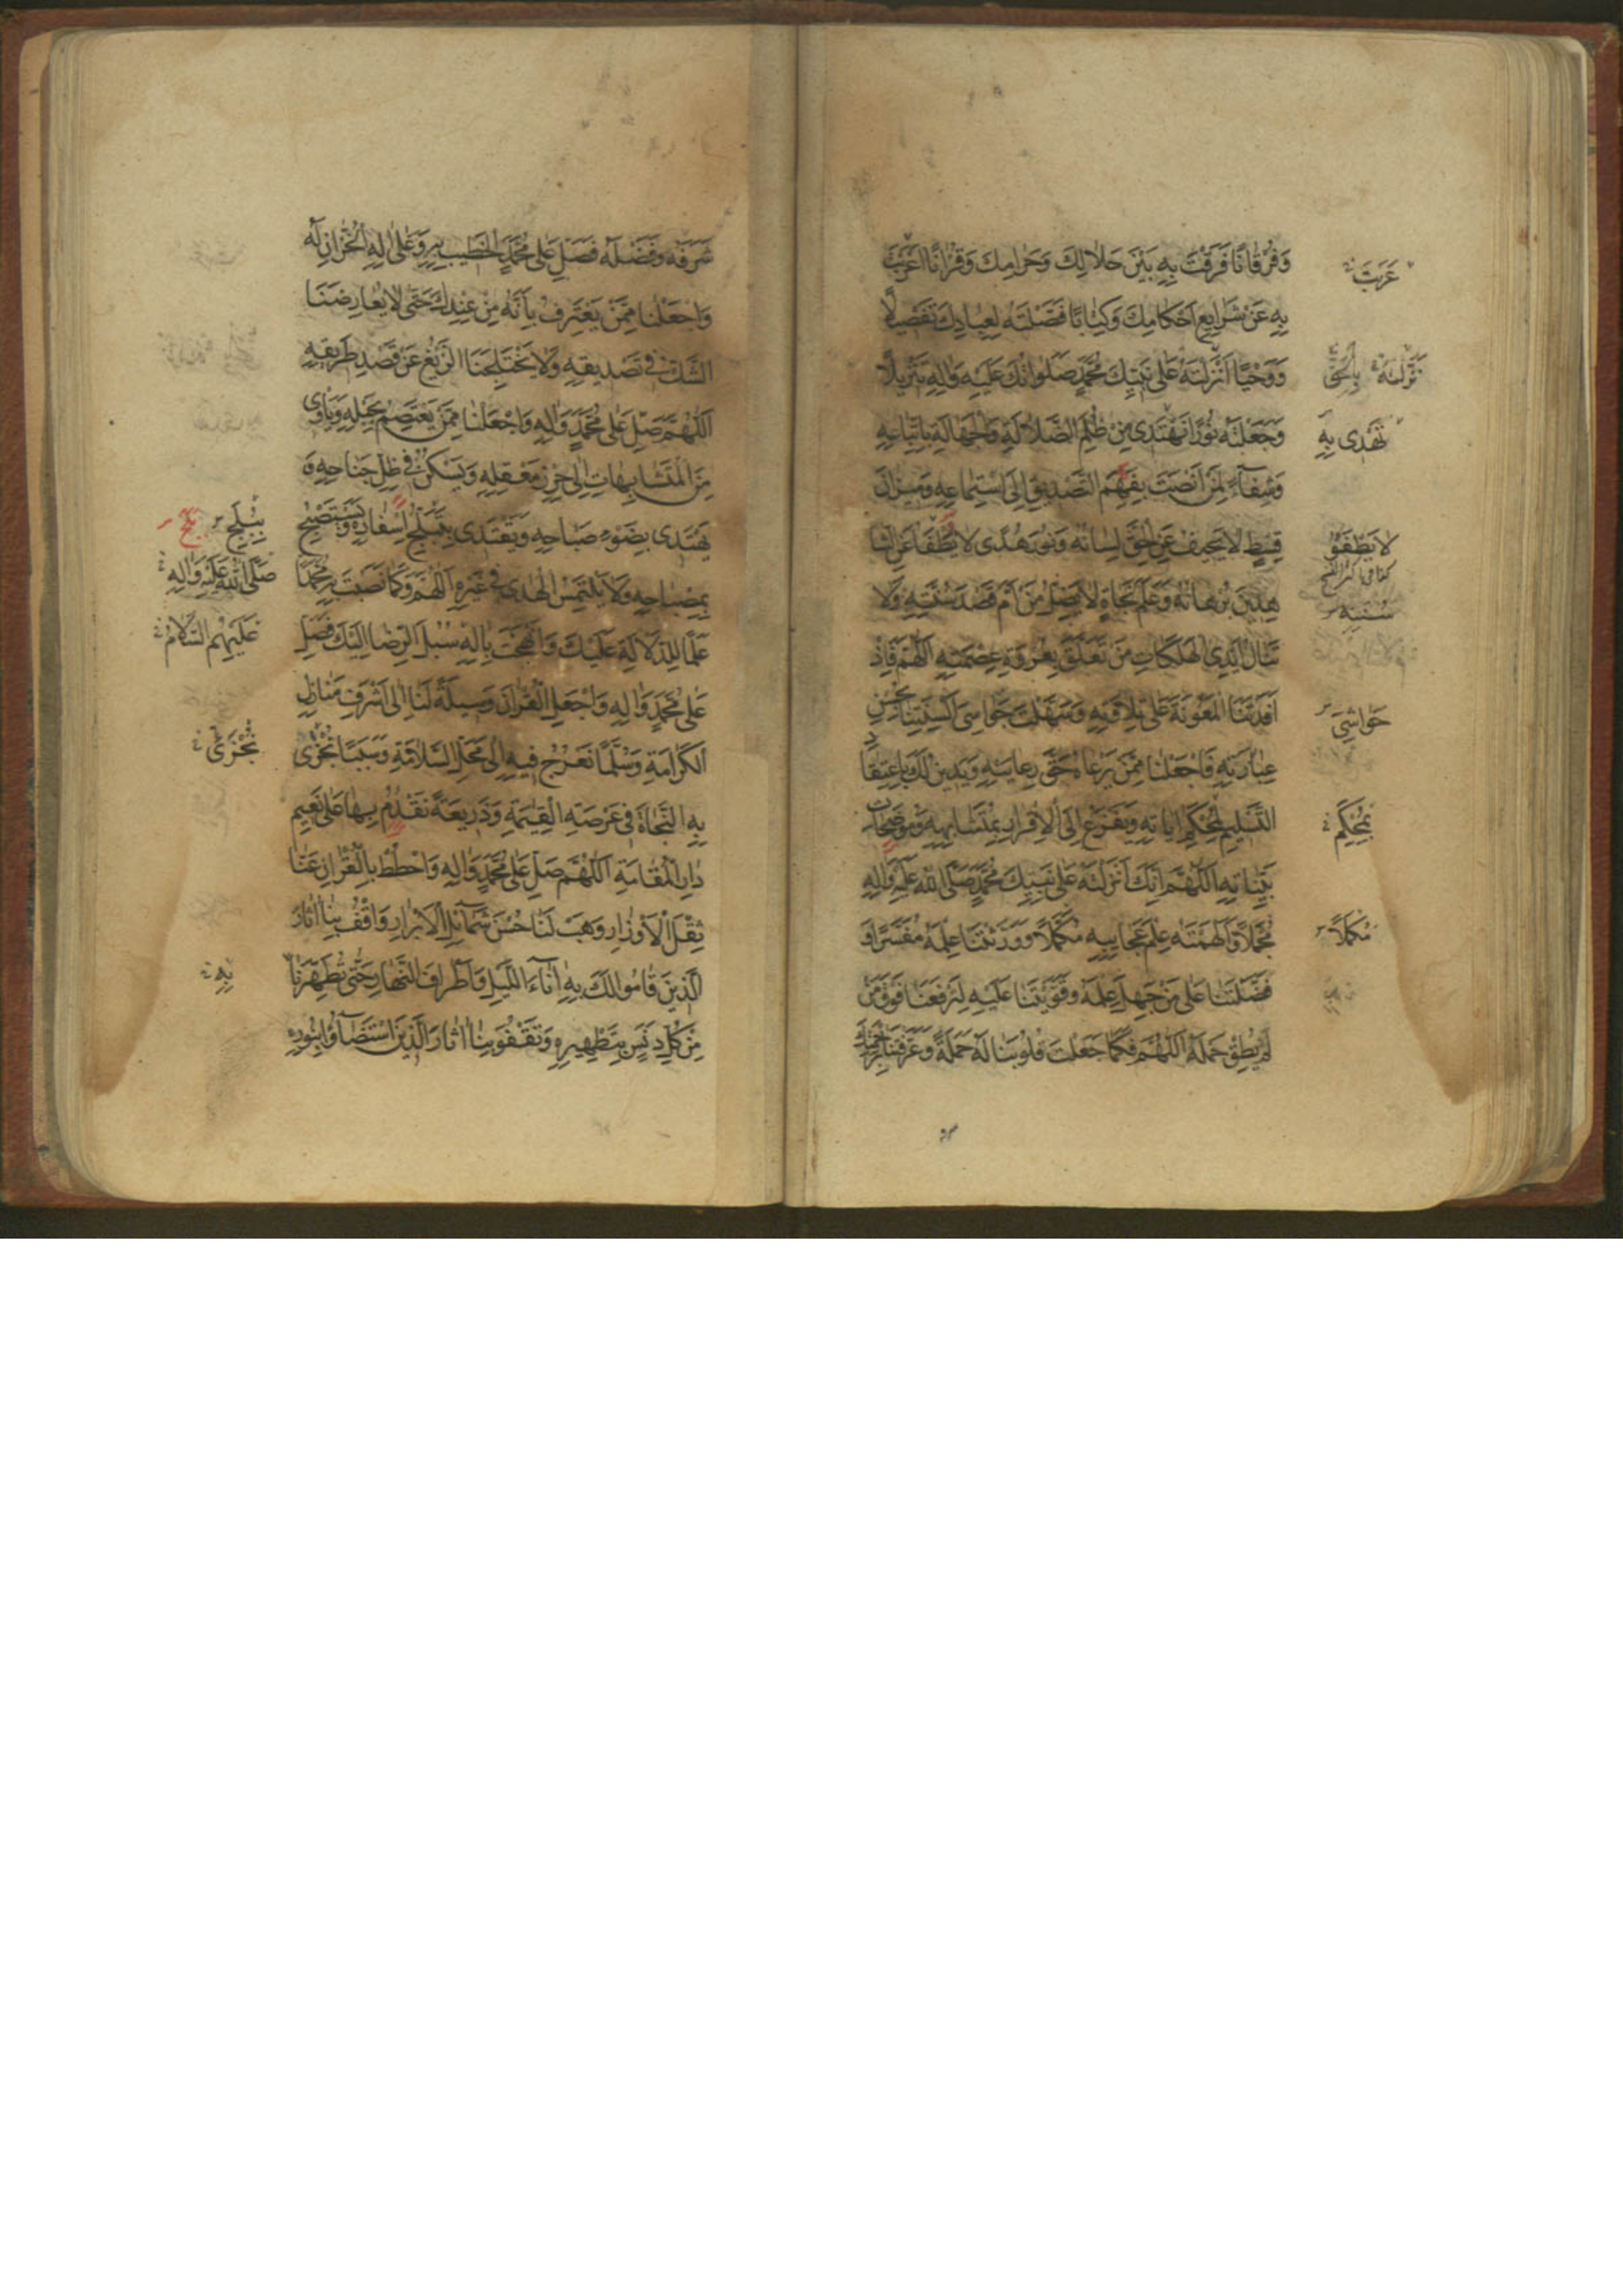 وَفُرْقَانًا فَرَقْتَ بِهِ بَيْنَ حَلَالِكَ وَحَرَامِكَ وَقُرْاٰنًا اَعْرَبْتَ
بِهِ عَنْ شَرَايِعِ اَحْكَامِكَ وَكِتَابًا فَصَّلْتَهُ لِعِبَادِكَ تَفْصِيلًا
وَوَحْيًا اَنْزَلْتَهُ عَلٰى نَبِيِّكَ مُحَمَّدٍ صَلَوَاتُكَ عَلَيْهِ وَاٰلِهِ تَنْزِيلًا
وَجَعَلْتَهُ نُورًا نَهْتَدِى مِنْ ظُلَمِ الضَّلَالَةِ وَالْجَهَالَةِ بِاتِّبَاعِهِ
وَشِفَآءً لِمَنْ اَنْصَتَ بِفَهْمِ التَّصْدِيقِ اِلَى اسْتِمَاعِهِ وَمِيزَانَ
قِسْطٍ لَا يَحِيفُ عَنِ الْحَقِّ لِسَانُهُ وَنُورَ هُدًى لَا يُطْفَأُ عَنِ الشَّا
هِدِينَ بُرْهَانُهُ وَعَلَمَ نَجَاةٍ لَا يَضِلُّ مَنْ اَمَّ قَصْدَ سُنَّتِهِ وَلَا
تَنَالُ اَيْدِى الْهَلَكَاتِ مَنْ تَعَلَّقَ بِعُرْوَةِ عِصْمَتِهِ اَللّٰهُمَّ فَاِذْ
اَفَدْتَنَا الْمَعُونَةَ عَلٰى تِلَاوَتِهِ وَسَهَّلْتَ جَوَاسِىَ اَلْسِنَتِنَا بِحُسْنِ
عِبَارَتِهِ فَاجْعَلْنَا مِمَّنْ يَرْعَاهُ حَقَّ رِعَايَتِهِ وَيَدِينُ لَكَ بِاعْتِقَادِ
التَّسْلِيمِ لِمُحْكَمِ اٰيَاتِهِ وَيَفْزَعُ اِلَى الْاِقْرَارِ بِمُتَشَابِهِهِ وَمُوضَحَاتِ
بَيِّنَاتِهِ اَللّٰهُمَّ اِنَّكَ اَنْزَلْتَهُ عَلٰى نَبِيِّكَ مُحَمَّدٍ صَلَّى اللهُ عَلَيْهِ وَاٰلِهِ
مُجْمَلًا وَاَلْهَمْتَهُ عِلْمَ عَجَايِبِهِ مُكَمَّلًا وَوَرَّثْتَنَا عِلْمَهُ مُفَسَّرًا وَ
فَضَّلْتَنَا عَلٰى مَنْ جَهِلَ عِلْمَهُ وَقَوَّيْتَنَا عَلَيْهِ لِتَرْفَعَنَا فَوْقَ مَنْ
لَمْ يُطِقْ حَمْلَهُ اَللّٰهُمَّ فَكَمَا جَعَلْتَ قُلُوبَنَا لَهُ حَمَلَةً وَعَرَّفْتَنَا بِرَحْمَتِكَ
عَرَبْتَ
نَزَّلْتَهُ بِالْحَقِّ
نَهْتَدِى بِهِ
لَا يَطْفَؤُ
سُنَنِهِ
حَوَاشِىَ
بِمُحْكَمِ
مُكْمَلًا
شَرَفَهُ وَفَضْلَهُ فَصَلِّ عَلٰى مُحَمَّدٍ الْخَطِيبِ بِهِ وَعَلٰى اٰلِهِ الْخُزَّانِ لَهُ
وَاجْعَلْنَا مِمَّنْ يَعْتَرِفُ بِاَنَّهُ مِنْ عِنْدِكَ حَتّٰى لَا يُعَارِضَنَا
الشَّكُّ فِى تَصْدِيقِهِ وَلَا يَخْتَلِجَنَا الزَّيْغُ عَنْ قَصْدِ طَرِيقِهِ
اَللّٰهُمَّ صَلِّ عَلٰى مُحَمَّدٍ وَاٰلِهِ وَاجْعَلْنَا مِمَّنْ يَعْتَصِمُ بِحَبْلِهِ وَيَاْوِى
مِنَ الْمُتَشَابِهَاتِ اِلٰى حِرْزِ مَعْقِلِهِ وَيَسْكُنُ فِى ظِلِّ جَنَاحِهِ وَ
يَهْتَدِى بِضَوْءِ صَبَاحِهِ وَيَقْتَدِى بِتَبَلُّجِ اِسْفَارِهِ وَيَسْتَصْبِحُ
بِمِصْبَاحِهِ وَلَا يَلْتَمِسُ الْهُدٰى فِى غَيْرِهِ اَللّٰهُمَّ وَكَمَا نَصَبْتَ بِهِ مُحَمَّدًا
عَلَمًا لِلدَّلَالَةِ عَلَيْكَ وَاَنْهَجْتَ بِاٰلِهِ سُبُلَ الرِّضَا اِلَيْكَ فَصَلِّ
عَلٰى مُحَمَّدٍ وَاٰلِهِ وَاجْعَلِ الْقُرْاٰنَ وَسِيلَةً لَنَا اِلٰى اَشْرَفِ مَنَازِلِ
الْكَرَامَةِ وَسُلَّمًا نَعْرُجُ فِيهِ اِلٰى مَحَلِّ السَّلَامَةِ وَسَبَبًا نُجْزٰى
بِهِ النَّجَاةَ فِى عَرْصَةِ الْقِيٰمَةِ وَذَرِيعَةً نَقْدَمُ بِهَا عَلٰى نَعِيمِ
دَارِ الْمُقَامَةِ اَللّٰهُمَّ صَلِّ عَلٰى مُحَمَّدٍ وَاٰلِهِ وَاحْطُطْ بِالْقُرْاٰنِ عَنَّا
ثِقْلَ الْاَوْزَارِ وَهَبْ لَنَا حُسْنَ شَمَآئِلِ الْاَبْرَارِ وَاقْفُ بِنَا اٰثَارَ
الَّذِينَ قَامُوا لَكَ بِهِ اٰنَآءَ اللَّيْلِ وَاَطْرَافَ النَّهَارِ حَتّٰى تُطَهِّرَنَا
مِنْ كُلِّ دَنَسٍ بِتَطْهِيرِهِ وَتَقْفُوَ بِنَا اٰثَارَ الَّذِينَ اسْتَضَآؤُا بِنُورِهِ
صَلَّى اللهُ عَلَيْهِ وَاٰلِهِ
عَلَيْهِمُ السَّلَامُ
نُجْزٰى
بِهِ